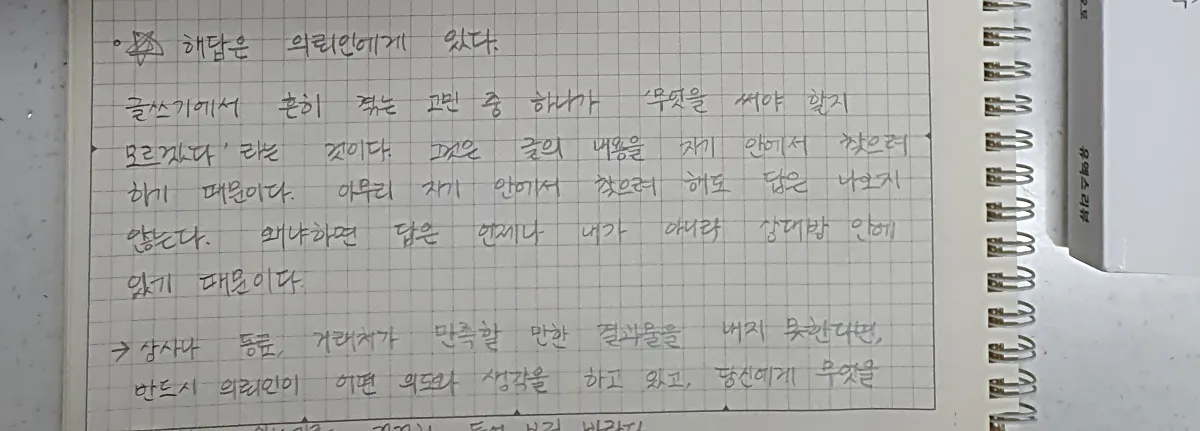 • ☆ 해답은 의뢰인에게 있다.
글쓰기에서 흔히 겪는 고민 중 하나가 '무엇을 써야 할지
모르겠다' 라는 것이다. 그것은 글의 내용을 자기 안에서 찾으려
하기 때문이다. 아무리 자기 안에서 찾으려 해도 답은 나오지
않는다. 왜냐하면 답은 언제나 내가 아니라 상대방 안에
있기 때문이다.
→ 상사나 동료, 거래처가 만족할 만한 결과물을 내지 못한다면,
반드시 의뢰인이 어떤 의도와 생각을 하고 있고, 당신에게 무엇을